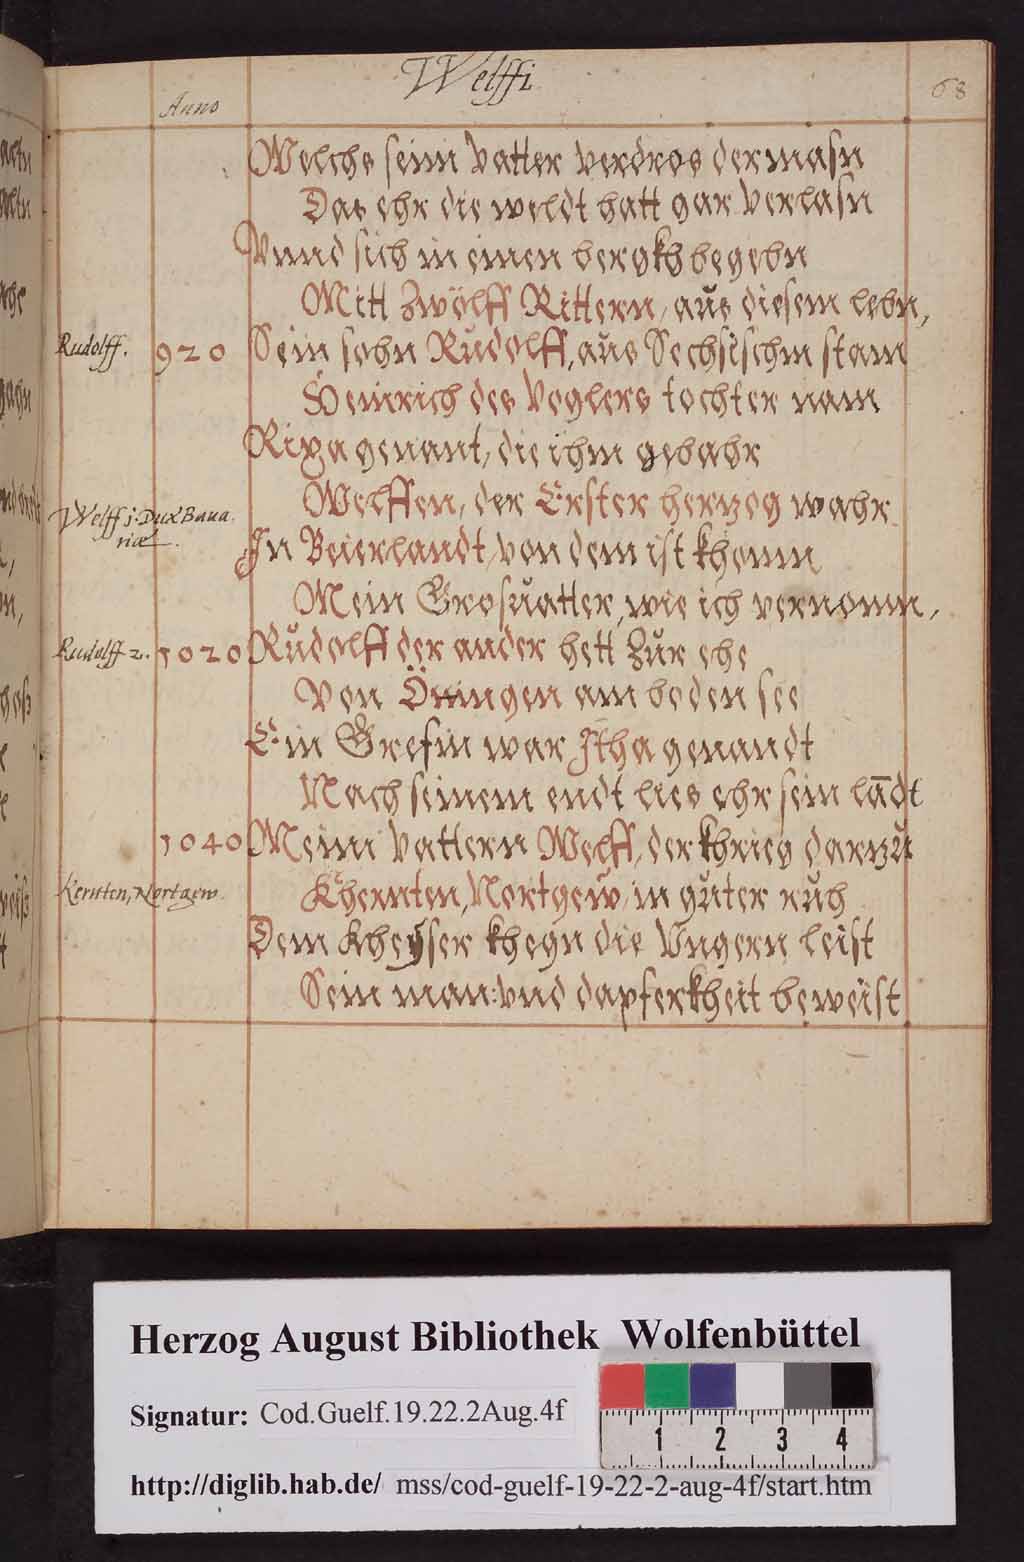 Welffi
Anno
68
Welchs seim Vatter verdros dermasn
Das ehr die weldt hatt gar verlasn
Vnnd sich in einen bergkh begebn
Mitt Zwölff Rittern, aus diesem lebn,
Rudolff. 920 Sein sohn Rudolff, aus Sechsischm stam
Heinrich des Voglers tochter nam
Rixa genant, die ihm gebahr
Welff j. Dux Baua Welffen, der Erster herzog wahr
riæ. In Beierlandt, von dem ist khomn
Mein Grosuatter, wie ich vernomn,
Rudolff 2. 1020 Rudolff der ander hett zur ehe
Von Öningen am boden see
Ein Grefin war Itha genandt
Nach seinem endt lies ehr sein lādt
1040 Meim Vattern Welff, der khrieg darzu
Kernten, Nortgew. Khernten, Nortgew, in guter ruh
Dem Kheyser khegn die Vngern leist
Sein man: vnd dapferkheit beweist
Herzog August Bibliothek Wolfenbüttel
Signatur: Cod.Guelf.19.22.2Aug.4f
1 2 3 4
http://diglib.hab.de/ mss/cod-guelf-19-22-2-aug-4f/start.htm